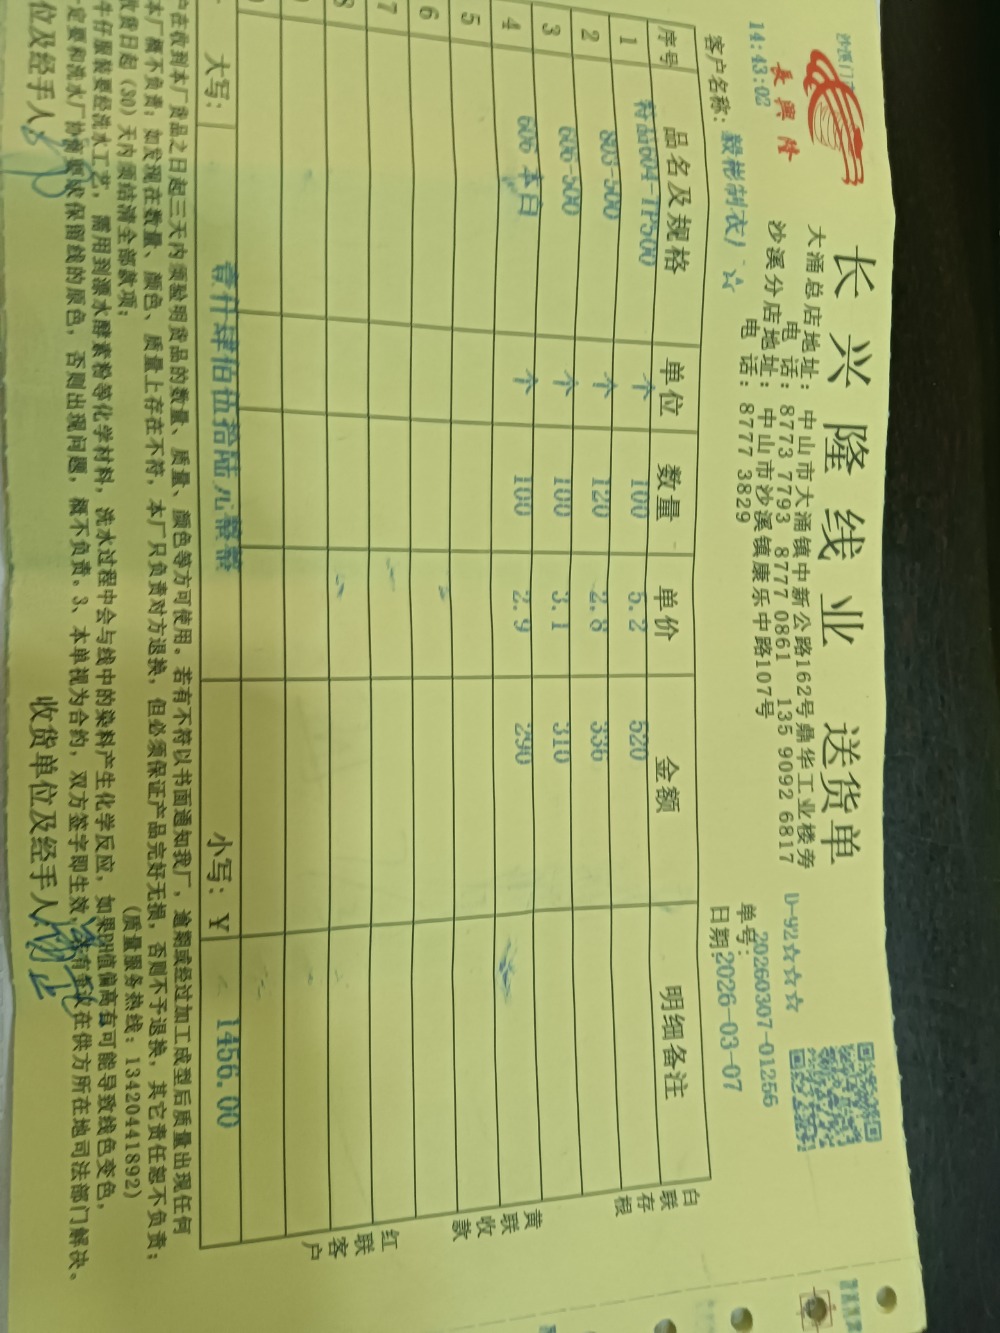 長興隆
长兴隆线业 送货单
14:43:02
大涌总店地址: 中山市大涌镇中新公路162号鼎华工业楼旁
电话: 8773 7793 8777 0861 135 9092 6817
沙溪分店地址: 中山市沙溪镇康乐中路107号
电话: 8777 3829
单号: 20260307-01256
客户名称: 毅彬制衣厂 ☆
日期: 2026-03-07
序号 品名及规格 单位 数量 单价 金额 明细备注
1 特品604-TP500 个 100 5.2 520
2 803-500 个 120 2.8 336
3 606-500 个 100 3.1 310
4 606 本白 个 100 2.9 290
5
6
7
8
大写: 壹仟肆佰伍拾陆元整 小写: ¥ 1456.00
白联存根
黄联收款
红联客户
在收到本厂货品之日起三天内须验明货品的数量、质量、颜色等方可使用。若有不符以书面通知我厂, 逾期或经过加工成型后质量出现任何
本厂概不负责; 如发现在数量、颜色、质量上存在不符, 本厂只负责对方退换, 但必须保证产品完好无损, 否则不予退换, 其它责任恕不负责;
收货日起 (30) 天内须结清全部款项; (质量服务热线: 13420441892)
牛仔服装要经洗水工艺, 需用到漂水酵素粉等化学材料, 洗水过程中会与线中的染料产生化学反应, 如果PH值偏高有可能导致线色变色,
一定要和洗水厂协商要求保留线的原色, 否则出现问题, 概不负责。3、本单视为合约, 双方签字即生效, 在供方所在地司法部门解决。
位及经手人 收货单位及经手人